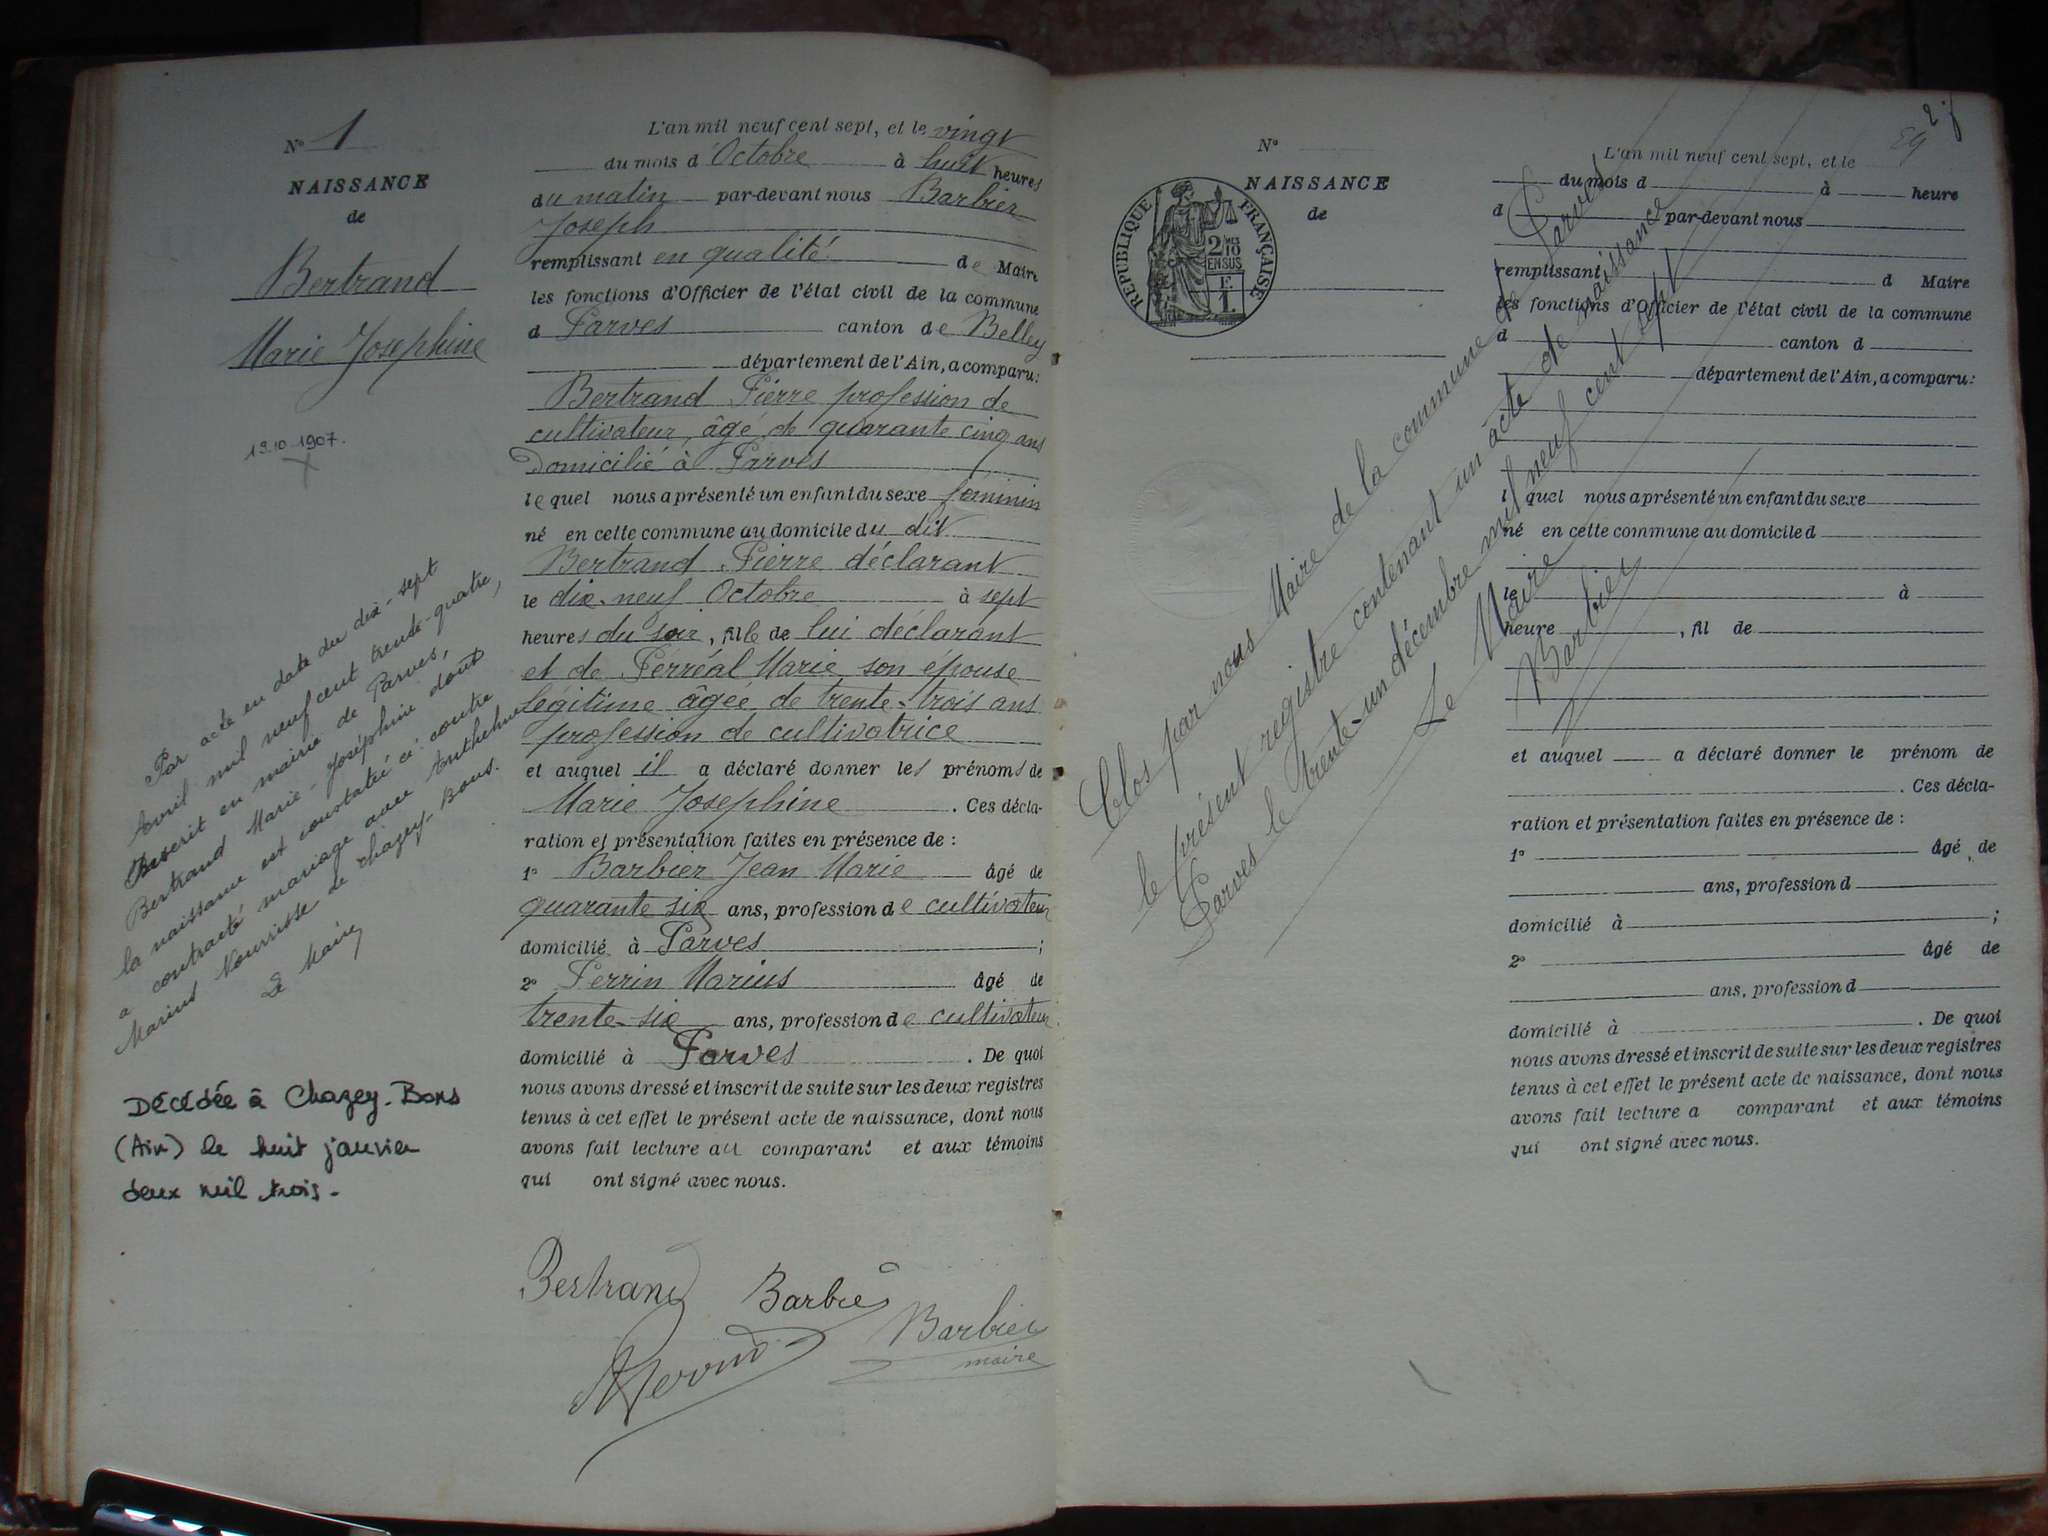 N° 1
NAISSANCE
de
Bertrand
Marie Josephine
19.10.1907.
Par acte en date du dix-sept
Avril mil neuf cent trente-quatre,
inscrit en mairie de Parves,
Bertrand Marie-Joséphine dont
la naissance est constatée ci-contre
a contracté mariage avec Anthelme
Marius Nourrisse de Chazey-Bons.
Le Maire,
Décédée à Chazey-Bons
(Ain) le huit janvier
deux mil trois.
L'an mil neuf cent sept, et le vingt
du mois d'Octobre à huit heures
du matin par-devant nous Barbier
Joseph
remplissant en qualité de Maire
les fonctions d'Officier de l'état civil de la commune
d Parves canton de Belley
département de l'Ain, a comparu:
Bertrand Pierre profession de
cultivateur âgé de quarante cinq ans
Domicilié à Parves
lequel nous a présenté un enfant du sexe féminin
né en cette commune au domicile du dit
Bertrand Pierre déclarant
le dix-neuf Octobre à sept
heures du soir, fille de lui déclarant
et de Perréal Marie son épouse
légitime âgée de trente-trois ans
profession de cultivatrice
et auquel il a déclaré donner les prénoms de
Marie Josephine. Ces décla-
ration et présentation faites en présence de :
1° Barbier Jean Marie âgé de
quarante six ans, profession de cultivateur
domicilié à Parves ;
2° Perrin Marius âgé de
trente-six ans, profession de cultivateur
domicilié à Parves. De quoi
nous avons dressé et inscrit de suite sur les deux registres
tenus à cet effet le présent acte de naissance, dont nous
avons fait lecture au comparant et aux témoins
qui ont signé avec nous.
Bertrand Barbier
Barbier
maire
29
N°
NAISSANCE
de
REPUBLIQUE FRANÇAISE
2/10
EN SUS
L'an mil neuf cent sept, et le
du mois d à heure
d par-devant nous
remplissant d Maire
les fonctions d'Officier de l'état civil de la commune
d canton d
département de l'Ain, a comparu:
l quel nous a présenté un enfant du sexe
né en cette commune au domicile d
le à
heure , fil de
et auquel a déclaré donner le prénom de
. Ces décla-
ration et présentation faites en présence de :
1° âgé de
ans, profession d
domicilié à ;
2° âgé de
ans, profession d
domicilié à . De quoi
nous avons dressé et inscrit de suite sur les deux registres
tenus à cet effet le présent acte de naissance, dont nous
avons fait lecture a comparant et aux témoins
qui ont signé avec nous.
Clos par nous Maire de la commune de Parves
le présent registre contenant un acte de naissance
Parves le trente-un décembre mil neuf cent sept
Le Maire
Barbier